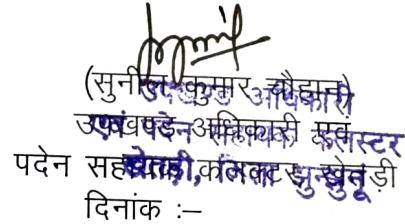 (सुनील कुमार चौहान)
उपखण्ड अधिकारी एवं
पदेन सहायक कलक्टर खेतड़ी
दिनांक :–
उपखण्ड अधिकारी
एवं पदेन सहायक कलक्टर
खेतड़ी, जिला झुन्झुनू